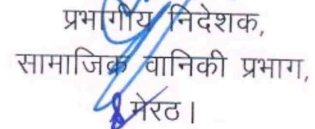 प्रभागीय निदेशक,
सामाजिक वानिकी प्रभाग,
मेरठ।